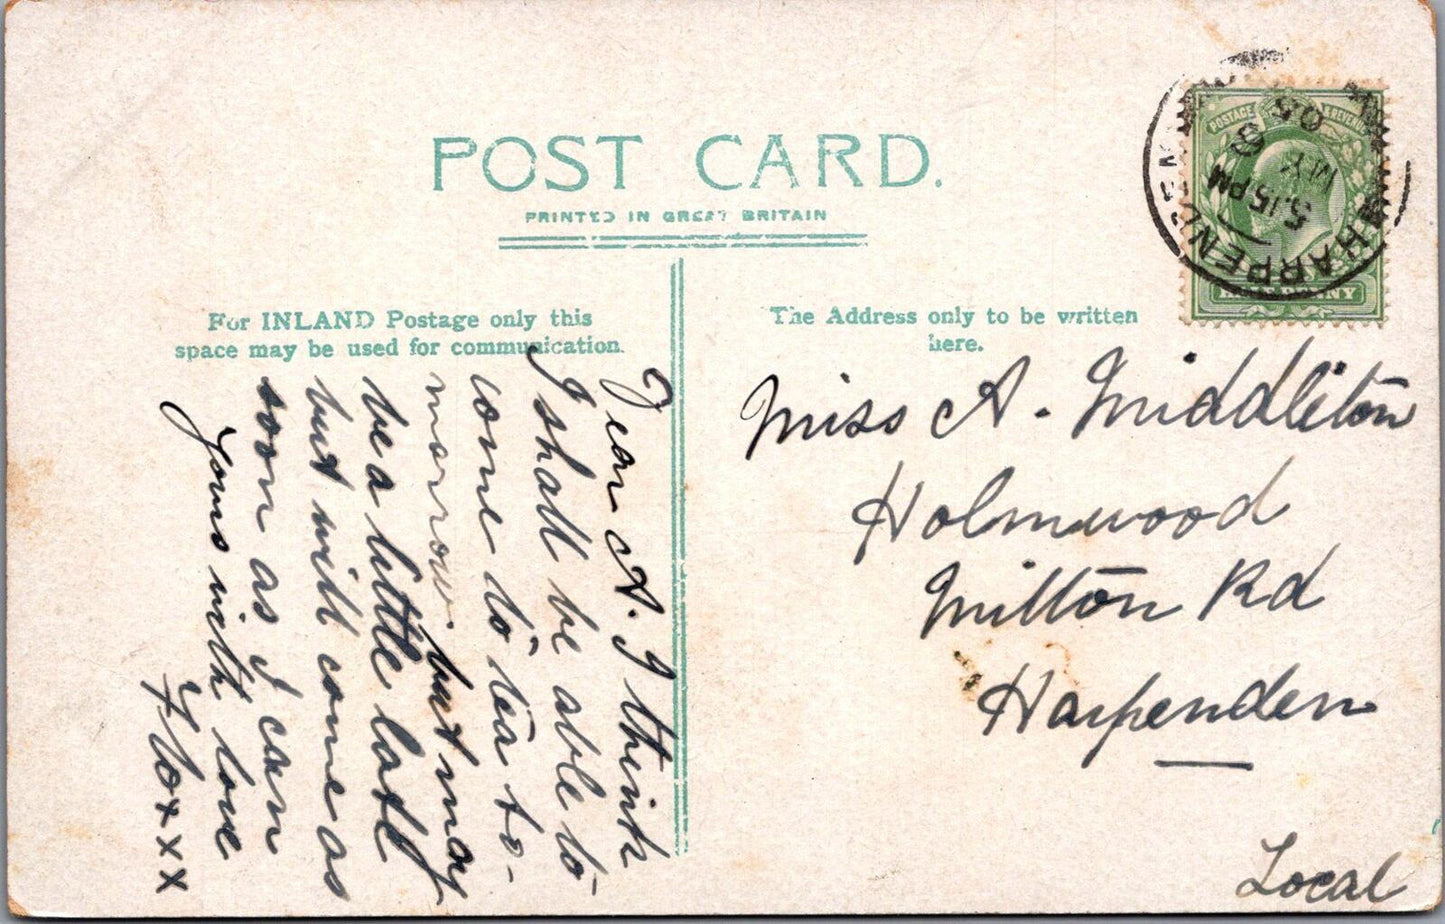 POST CARD.
PRINTED IN GREAT BRITAIN
For INLAND Postage only this
space may be used for communication.
The Address only to be written
here.
POSTAGE & REVENUE
HALFPENNY
HARPENDEN
5.15 PM
MY 8
05
Miss A. Middleton
Holmwood
Milton Rd
Harpenden
Local
Dear A. I think
I shall be able to
come to tea to-
morrow but may
be a little late
but will come as
soon as I can
Yours with love
Flo x x x